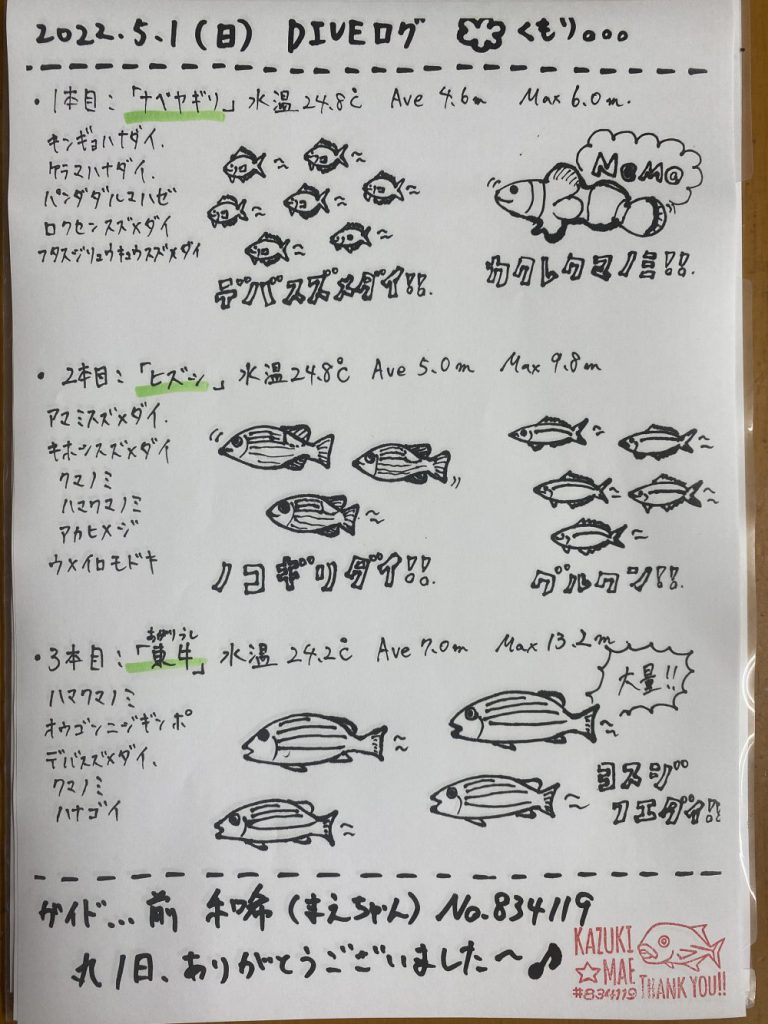 2022.5.1(日) DIVEログ くもり。。。
・1本目:「ナベヤギリ」水温24.8℃ Ave 4.6m Max 6.0m.
キンギョハナダイ.
ケラマハナダイ.
パンダダルマハゼ
ロクセンスズメダイ
フタスジリュウキュウスズメダイ
デバスズメダイ!!.
NEMO
カクレクマノミ!!.
・2本目:「ヒズーシ」水温24.8℃ Ave 5.0m Max 9.8m
アマミスズメダイ.
キホシスズメダイ
クマノミ
ハマクマノミ
アカヒメジ
ウメイロモドキ
ノコギリダイ!!.
グルクン!!.
あがりうし
・3本目:「東牛」水温24.2℃ Ave 7.0m Max 13.2m
ハマクマノミ
オウゴンニジギンポ
デバスズメダイ、
クマノミ
ハナゴイ
大量!!
ヨスジ
フエダイ!!
ガイド... 前 和希(まえちゃん) No.834119
丸1日、ありがとうございました〜♪
KAZUKI
☆MAE
#834119
THANK YOU!!